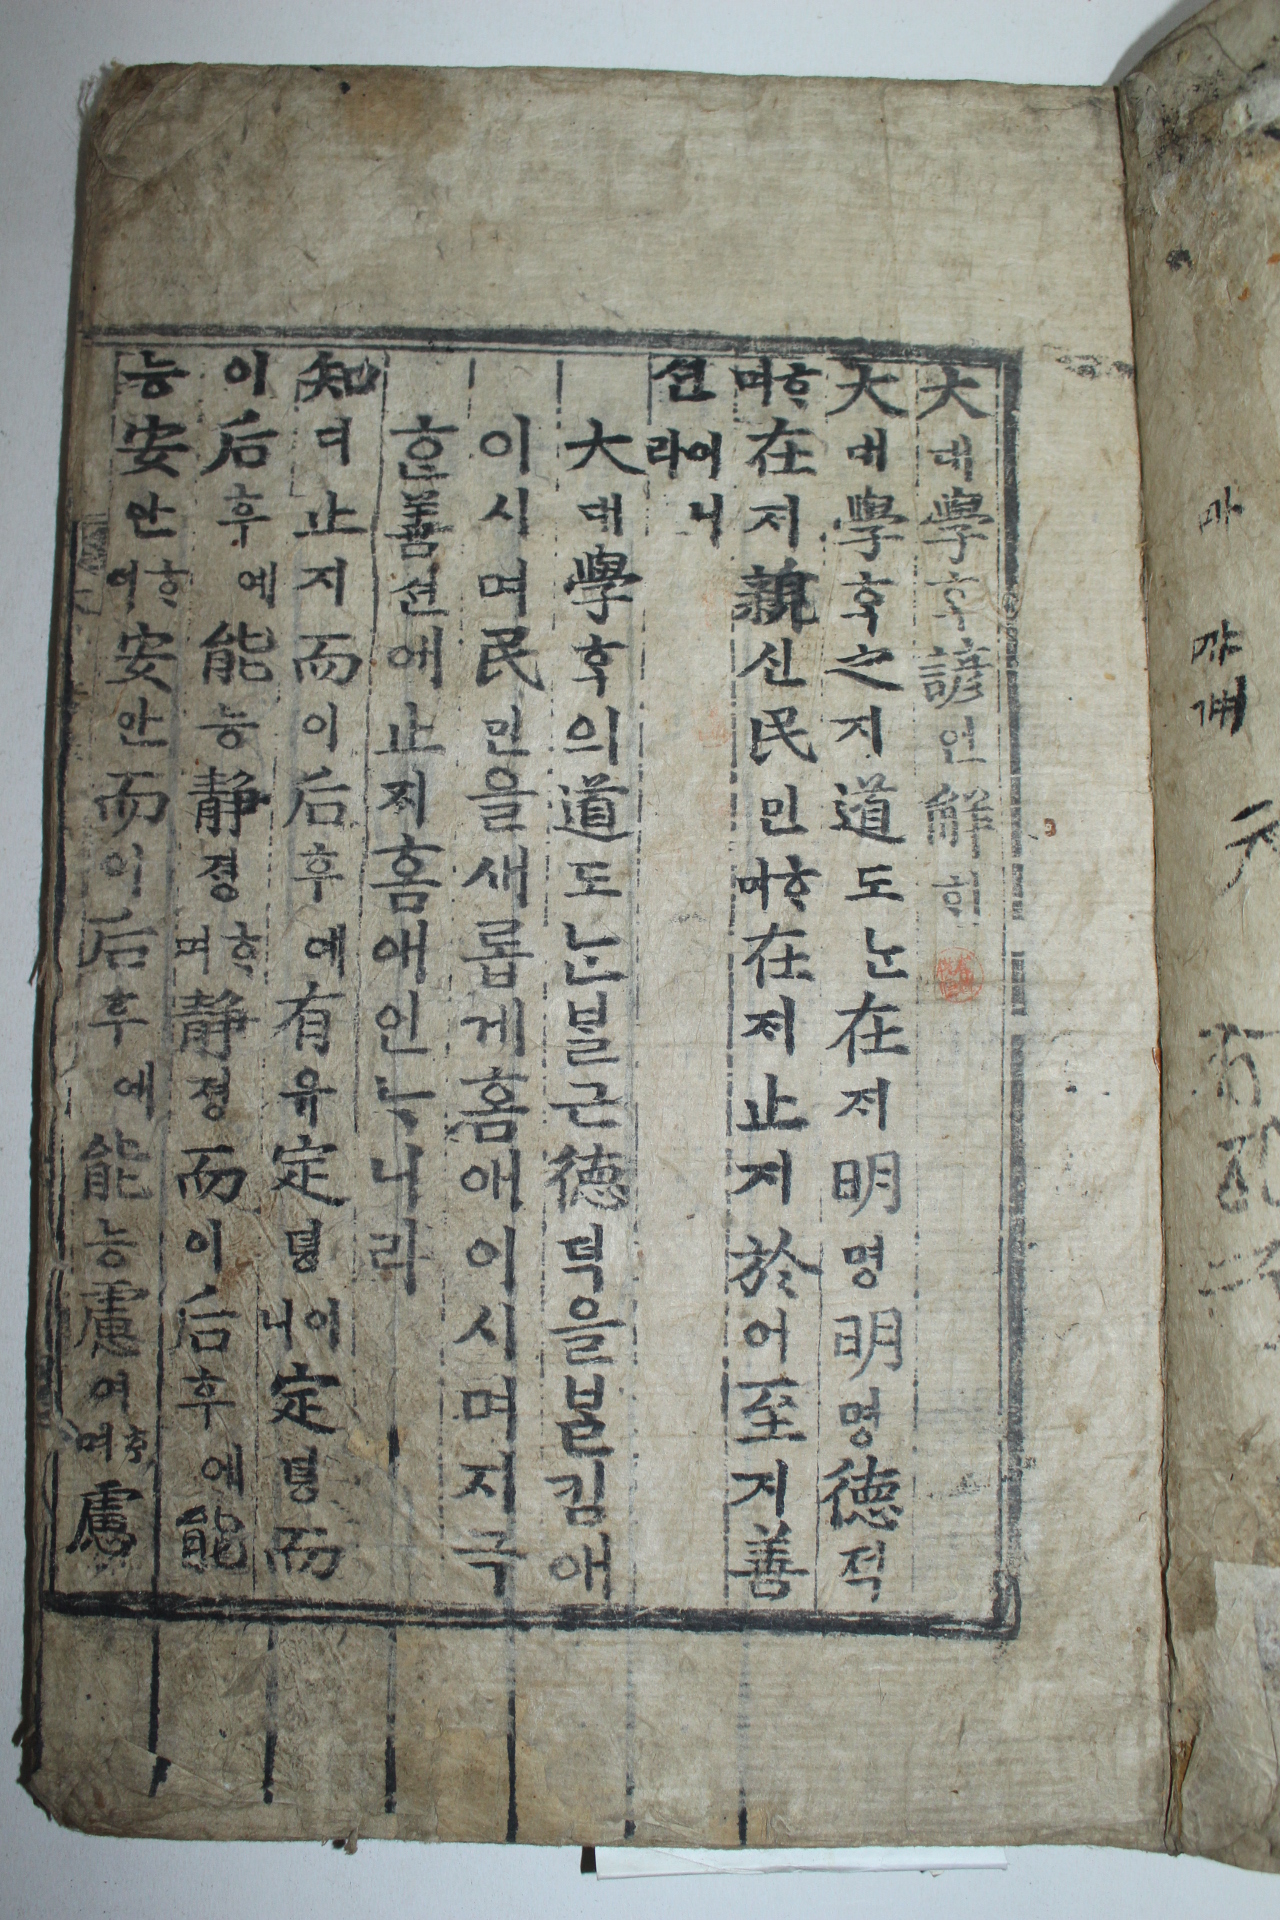 大대學ᄒᆞᆨ諺언解ᄒᆡ
大대學ᄒᆞᆨ之지道도ᄂᆞᆫ在ᄌᆡ明명明명德덕
ᄒᆞ며在ᄌᆡ親신民민ᄒᆞ며在ᄌᆡ止지於어至지善
션이니라
大대學ᄒᆞᆨ의道도ᄂᆞᆫᄇᆞᆯ근德덕을ᄇᆞᆯ킴애
이시며民민을새롭게홈애이시며지극
ᄒᆞᆫ善션에止지홈애인ᄂᆞ니라
知디止지而이后후에有유定뎡이니定뎡而
이后후에能능静졍ᄒᆞ며静졍而이后후에能
능安안ᄒᆞ며安안而이后후에能능慮려ᄒᆞ며慮